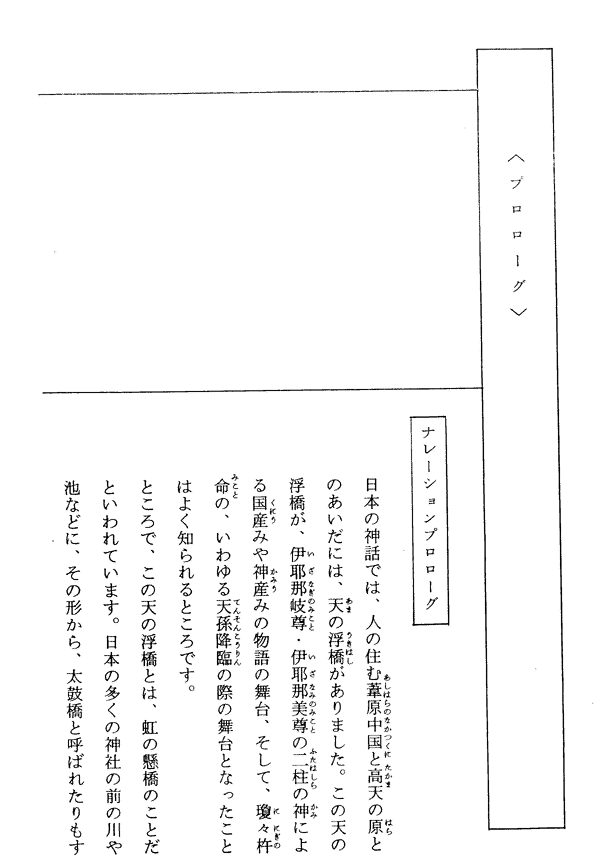 〈プロローグ〉
ナレーションプロローグ
日本の神話では、人の住む葦原中国と高天の原と
のあいだには、天の浮橋がありました。この天の
浮橋が、伊耶那岐尊・伊耶那美尊の二柱の神によ
る国産みや神産みの物語の舞台、そして、瓊々杵
命の、いわゆる天孫降臨の際の舞台となったこと
はよく知られるところです。
ところで、この天の浮橋とは、虹の懸橋のことだ
といわれています。日本の多くの神社の前の川や
池などに、その形から、太鼓橋と呼ばれたりもす